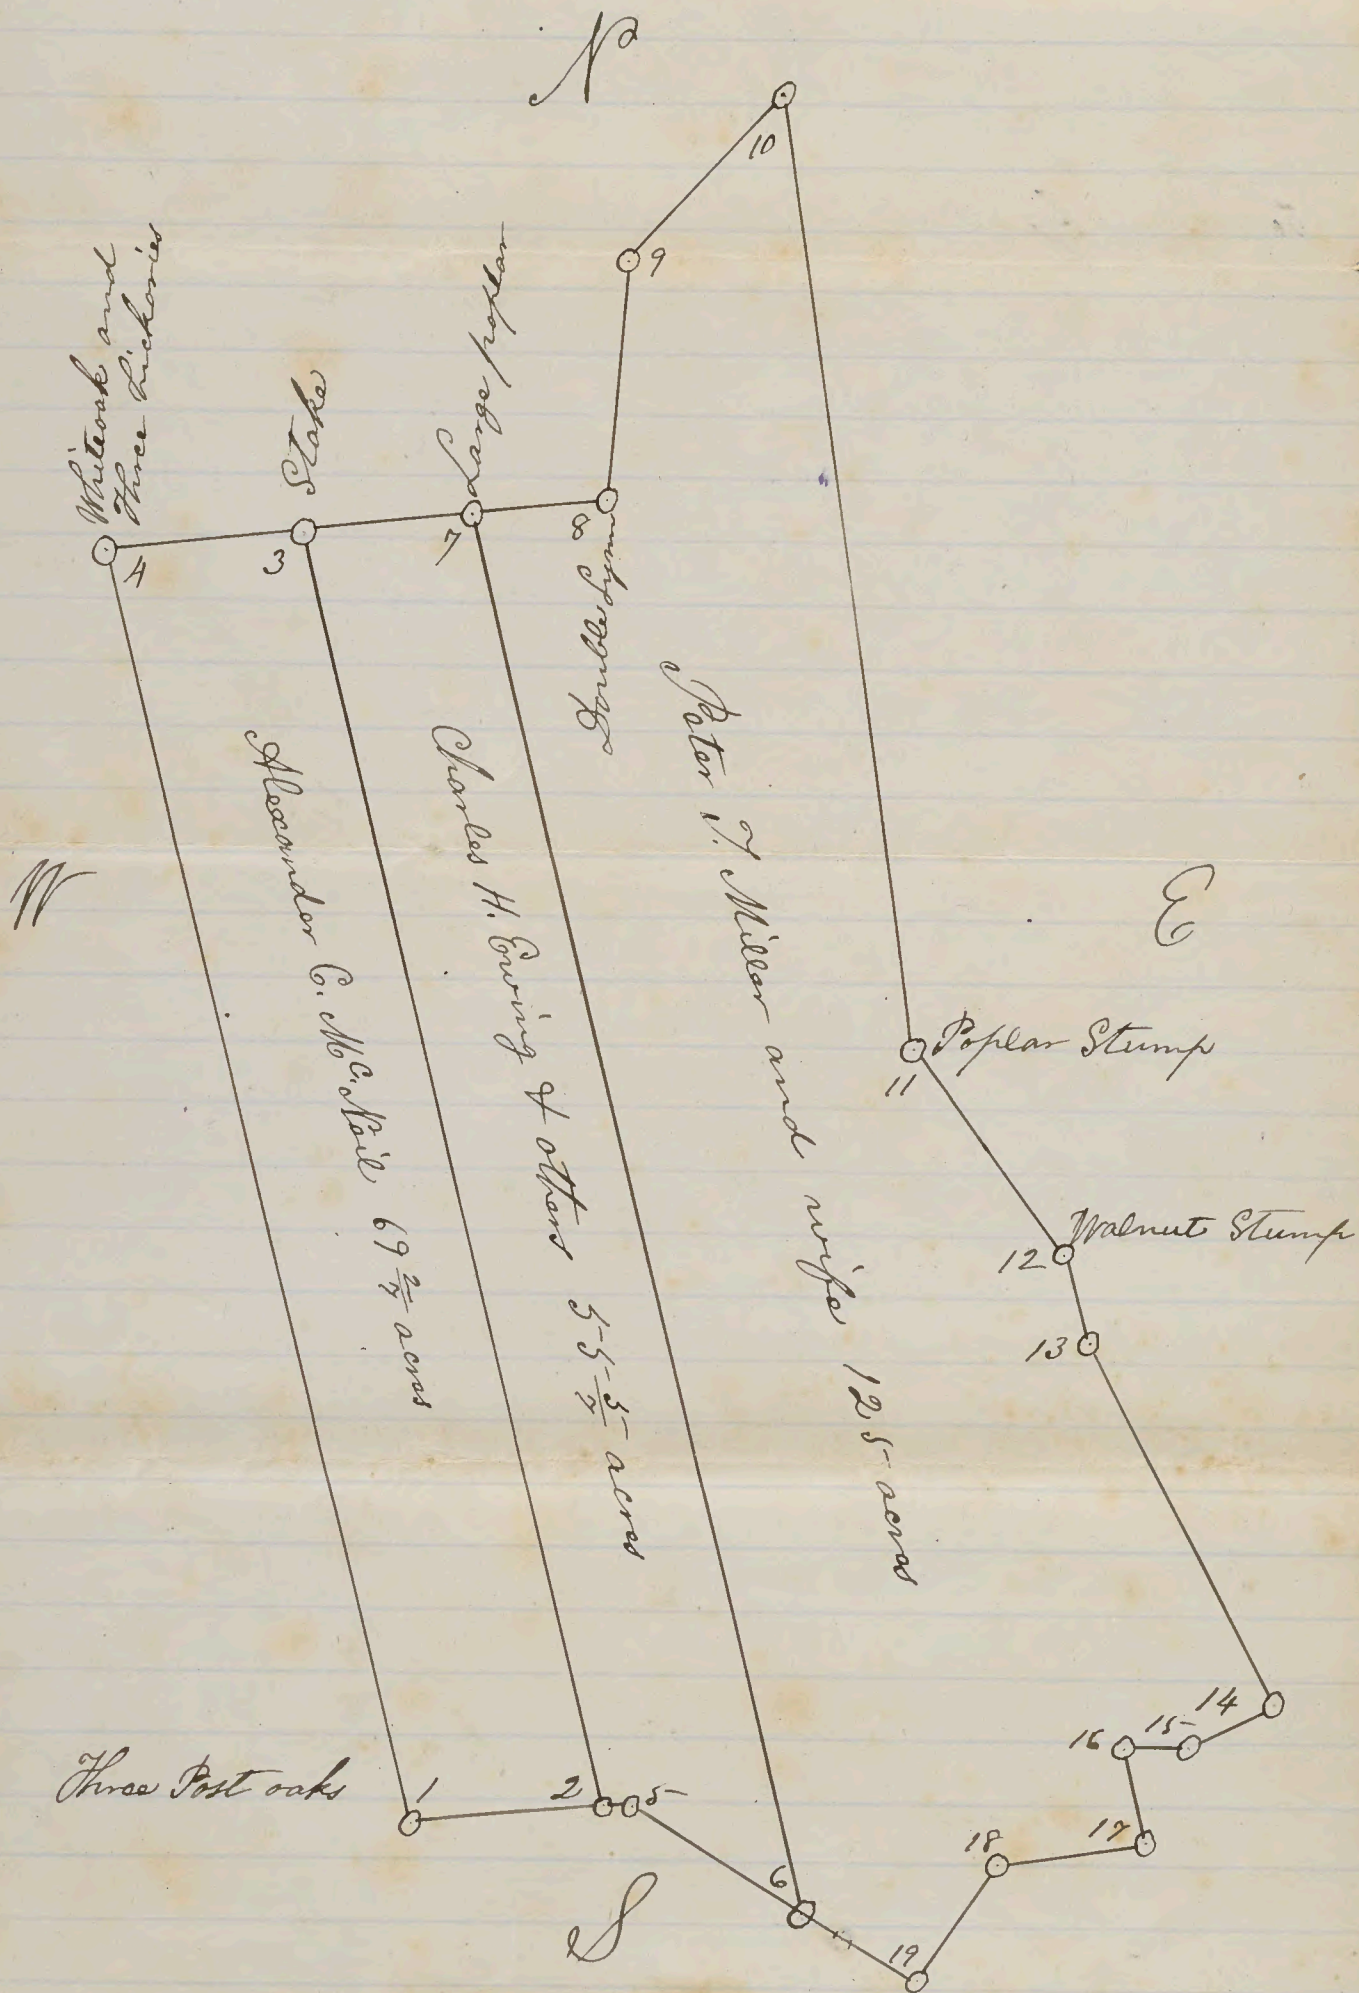 N
10
9
Whiteoak and
Three hickories
Stake
Large poplar
4
3
7
8
Peter T. Miller and wife 125 acres
Charles H. Ewing & others 55 5/7 acres
Alexander C. McNeil 69 2/7 acres
W
E
11
Poplar Stump
12
Walnut Stump
13
14
15
16
17
18
19
Three Post oaks
1
2
5
6
S